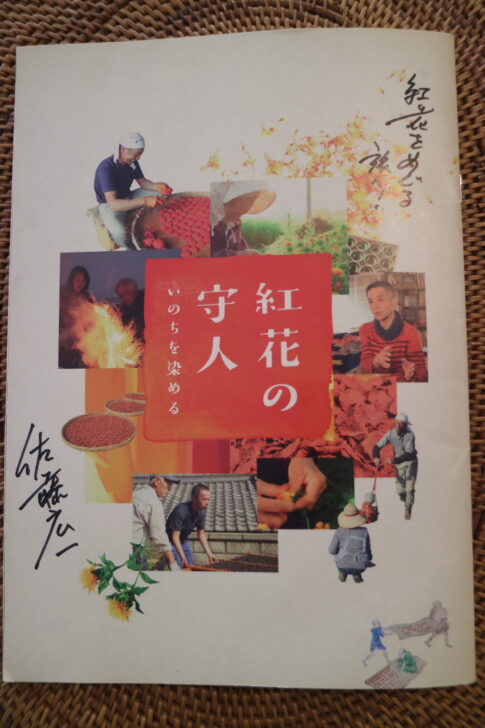 紅花をめぐる
旅
紅花の
守人
いのちを染める
佐藤広一